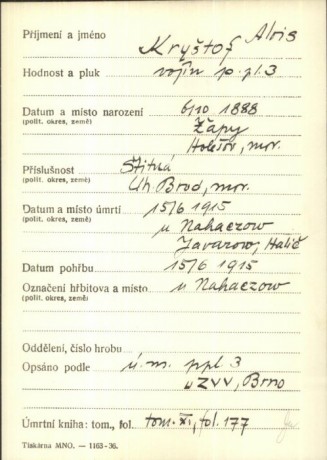 Příjmení a jméno Kryštof Alois
Hodnost a pluk vojín p. pl. 3
Datum a místo narození 6/10 1888
(polit. okres, země) Žápy
Holešov, mor.
Příslušnost Štítná
(polit. okres, země) Uh. Brod, mor.
Datum a místo úmrtí 15/6 1915
(polit. okres, země) u Nahaczow
Javarow, Halič
Datum pohřbu 15/6 1915
Označení hřbitova a místo u Nahaczow
(polit. okres, země)
Oddělení, číslo hrobu
Opsáno podle ú. m. ppl. 3
u ZVV, Brno
Úmrtní kniha: tom., fol. tom. XI, fol. 177
Tiskárna MNO. — 1163-36.